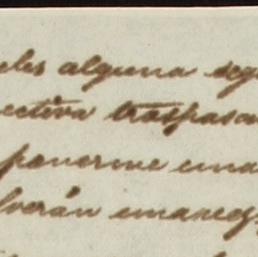 eles alguna seg
ectiva traspasa
ponerme una
lverán